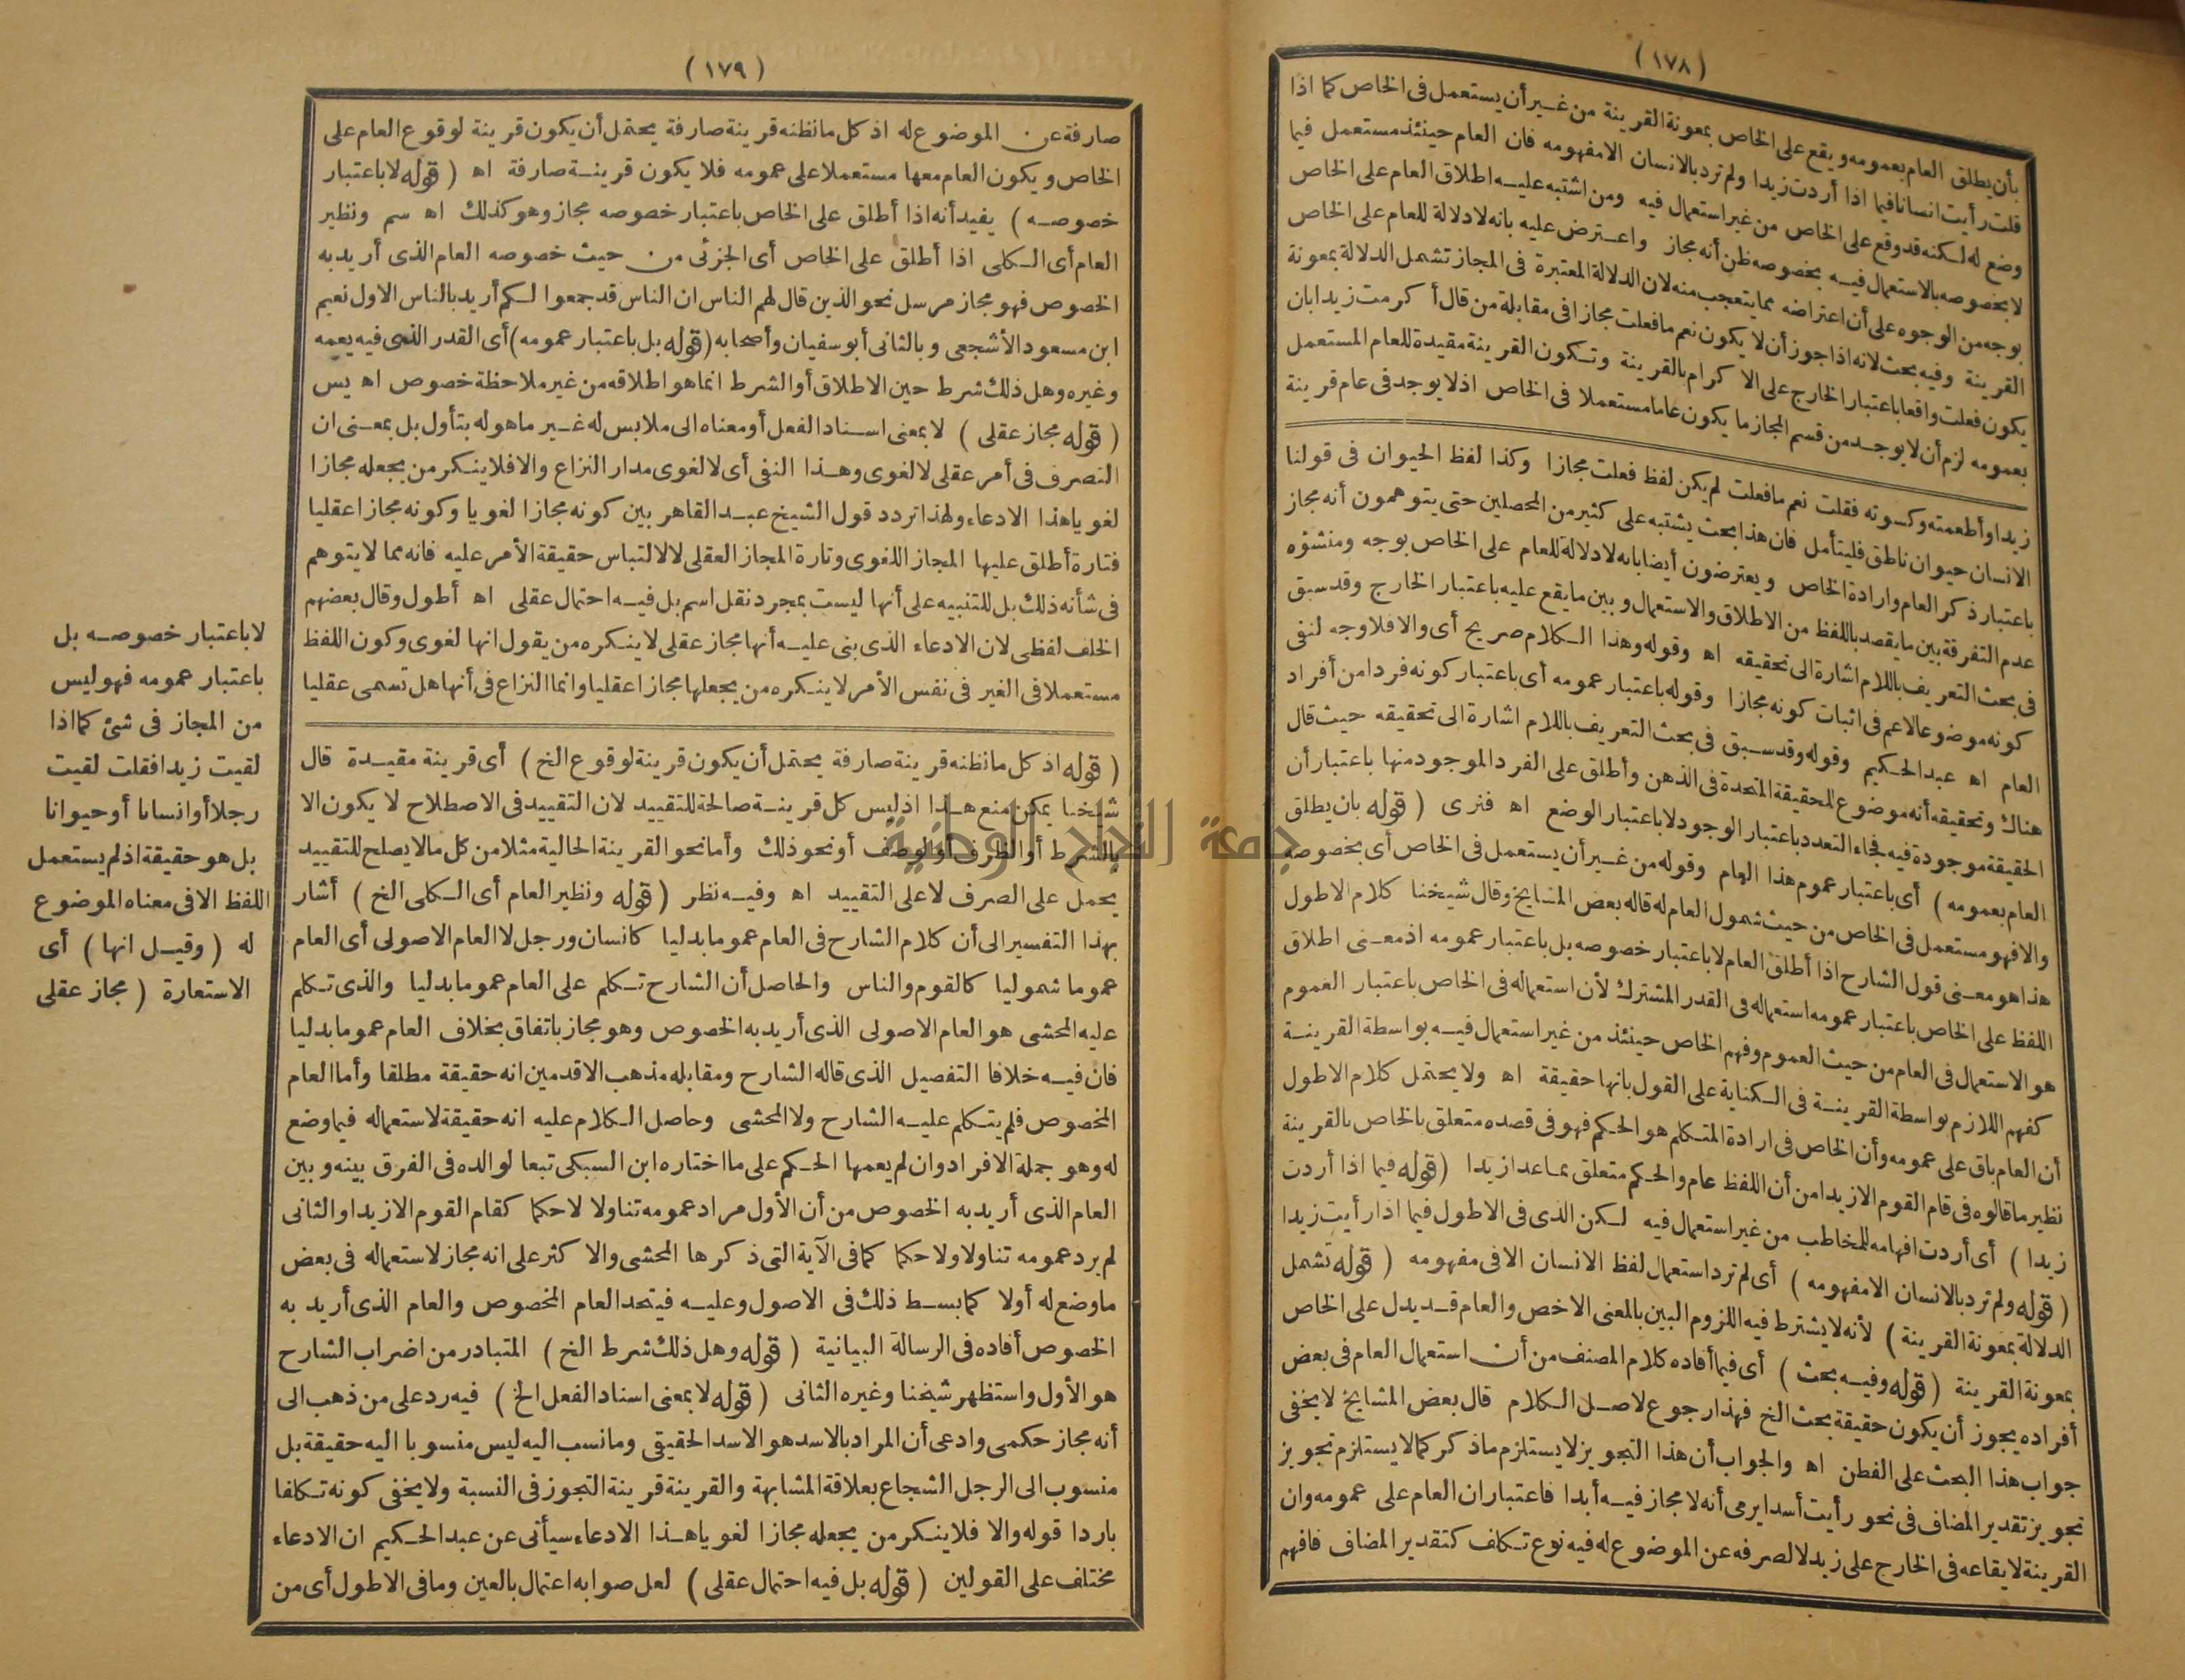 (١٧٨)
بأن يطلق العام بعمومه ويقع على الخاص بمعونة القرينة من غير أن يستعمل فى الخاص كما اذا
قلت رأيت انسانا فيما اذا أردت زيدا ولم ترد بالانسان الا مفهومه فان العام حينئذ مستعمل فيما
وضع له لكنه قد وقع على الخاص من غير استعمال فيه ومن اشتبه عليه اطلاق العام على الخاص
لا بخصوصه بالاستعمال فيه بخصوصه ظن أنه مجاز واعترض عليه بانه لا دلالة للعام على الخاص
بوجه من الوجوه على أن اعتراضه مما يتعجب منه لان الدلالة المعتبرة فى المجاز تشمل الدلالة بمعونة
القرينة وفيه بحث لانه اذا جوز أن لا يكون نعم ما فعلت مجازا فى مقابلة من قال أكرمت زيدا بان
يكون فعلت واقعا باعتبار الخارج على الا كرام بالقرينة وتكون القرينة مقيدة للعام المستعمل
بعمومه لزم أن لا يوجد من قسم المجاز ما يكون عاما مستعملا فى الخاص اذ لا يوجد فى عام قرينة
زيدا وأطعمته وكسوته فقلت نعم ما فعلت لم يكن لفظ فعلت مجازا وكذا لفظ الحيوان فى قولنا
الانسان حيوان ناطق فليتأمل فان هذا بحث يشتبه على كثير من المحصلين حتى يتوهمون أنه مجاز
باعتبار ذكر العام وارادة الخاص ويعترضون أيضا بانه لا دلالة للعام على الخاص بوجه ومنشؤه
عدم التفرقة بين ما يقصد باللفظ من الاطلاق والاستعمال وبين ما يقع عليه باعتبار الخارج وقد سبق
فى بحث التعريف باللام اشارة الى تحقيقه اه وقوله وهذا الكلام صريح أى والا فلا وجه لنفى
كونه موضوعا للاعم فى اثبات كونه مجازا وقوله باعتبار عمومه أى باعتبار كونه فردا من أفراد
العام اه عبد الحكيم وقوله وقد سبق فى بحث التعريف باللام اشارة الى تحقيقه حيث قال
هناك وتحقيقه أنه موضوع للحقيقة المتحدة فى الذهن وأطلق على الفرد الموجود منها باعتبار أن
الحقيقة موجودة فيه فجاء التعدد باعتبار الوجود لا باعتبار الوضع اه فنرى (قوله بان يطلق
العام بعمومه) أى باعتبار عموم هذا العام وقوله من غير أن يستعمل فى الخاص أى بخصوصه
والا فهو مستعمل فى الخاص من حيث شمول العام له قاله بعض المشايخ وقال شيخنا كلام الاطول
هذا هو معنى قول الشارح اذا أطلق العام لا باعتبار خصوصه بل باعتبار عمومه اذ معنى اطلاق
اللفظ على الخاص باعتبار عمومه استعماله فى القدر المشترك لأن استعماله فى الخاص باعتبار العموم
هو الاستعمال فى العام من حيث العموم وفهم الخاص حينئذ من غير استعمال فيه بواسطة القرينة
كفهم اللازم بواسطة القرينة فى الكناية على القول بانها حقيقة اه ولا يحتمل كلام الاطول
أن العام باق على عمومه وأن الخاص فى ارادة المتكلم هو الحكم فهو فى قصده متعلق بالخاص بالقرينة
نظير ما قالوه فى قام القوم الا زيدا من أن اللفظ عام والحكم متعلق بما عدا زيدا (قوله فيما اذا أردت
زيدا) أى أردت افهامه للمخاطب من غير استعمال فيه لكن الذى فى الاطول فيما اذا رأيت زيدا
(قوله ولم ترد بالانسان الا مفهومه) أى لم ترد استعمال لفظ الانسان الا فى مفهومه (قوله تشمل
الدلالة بمعونة القرينة) لأنه لا يشترط فيه اللزوم البين بالمعنى الاخص والعام قد يدل على الخاص
بمعونة القرينة (قوله وفيه بحث) أى فيما أفاده كلام المصنف من أن استعمال العام فى بعض
أفراده يجوز أن يكون حقيقة بحث الخ فهذا رجوع لاصل الكلام قال بعض المشايخ لا يخفى
جواب هذا البحث على الفطن اه والجواب أن هذا التجويز لا يستلزم ما ذكر كما لا يستلزم تجويز
تجويز تقدير المضاف فى نحو رأيت أسدا يرمى أنه لا مجاز فيه أبدا فاعتبار ان العام على عمومه وان
القرينة لايقاعه فى الخارج على زيد لا لصرفه عن الموضوع له فيه نوع تكلف كتقدير المضاف فافهم
(١٧٩)
صارفة عن الموضوع له اذ كل ما نظنه قرينة صارفة يحتمل أن يكون قرينة لوقوع العام على
الخاص ويكون العام معها مستعملا على عمومه فلا يكون قرينة صارفة اه (قوله لا باعتبار
خصوصه) يفيد أنه اذا أطلق على الخاص باعتبار خصوصه مجاز وهو كذلك اه سم ونظير
العام أى الكلى اذا أطلق على الخاص أى الجزئى من حيث خصوصه العام الذى أريد به
الخصوص فهو مجاز مرسل نحو الذين قال لهم الناس ان الناس قد جمعوا لكم أريد بالناس الاول نعيم
ابن مسعود الأشجعى وبالثانى أبو سفيان وأصحابه (قوله بل باعتبار عمومه) أى القدر الذى فيه يعمه
وغيره وهل ذلك شرط حين الاطلاق أو الشرط انما هو اطلاقه من غير ملاحظة خصوص اه يس
(قوله مجاز عقلى) لا بمعنى اسناد الفعل أو معناه الى ملابس له غير ما هو له بتأول بل بمعنى ان
التصرف فى أمر عقلى لا لغوى وهذا النفى أى لا لغوى مدار النزاع والا فلا ينكر من يجعله مجازا
لغويا هذا الادعاء ولهذا تردد قول الشيخ عبد القاهر بين كونه مجازا لغويا وكونه مجازا عقليا
فتارة أطلق عليها المجاز اللغوى وتارة المجاز العقلى لا لالتباس حقيقة الأمر عليه فانه مما لا يتوهم
فى شأنه ذلك بل للتنبيه على أنها ليست بمجرد نقل اسم بل فيه احتمال عقلى اه أطول وقال بعضهم
الخلف لفظى لان الادعاء الذى بنى عليه أنها مجاز عقلى لا ينكره من يقول انها لغوى وكون اللفظ
مستعملا فى الغير فى نفس الأمر لا ينكره من يجعلها مجازا عقليا وانما النزاع فى أنها هل تسمى عقليا
(قوله اذ كل ما نظنه قرينة صارفة يحتمل أن يكون قرينة لوقوع الخ) أى قرينة مقيدة قال
شيخنا يمكن منع هذا اذ ليس كل قرينة صالحة للتقييد لان التقييد فى الاصطلاح لا يكون الا
بالشرط أو الظرف أو الوصف أو نحو ذلك وأما نحو القرينة الحالية مثلا من كل ما لا يصلح للتقييد
يحمل على الصرف لا على التقييد اه وفيه نظر (قوله ونظير العام أى الكلى الخ) أشار
بهذا التفسير الى أن كلام الشارح فى العام عموما بدليا كانسان ورجل لا العام الاصولى أى العام
عموما شموليا كالقوم والناس والحاصل أن الشارح تكلم على العام عموما بدليا والذى تكلم
عليه المحشى هو العام الاصولى الذى أريد به الخصوص وهو مجاز باتفاق بخلاف العام عموما بدليا
فان فيه خلافا التفصيل الذى قاله الشارح ومقابله مذهب الاقدمين انه حقيقة مطلقا وأما العام
المخصوص فلم يتكلم عليه الشارح ولا المحشى وحاصل الكلام عليه انه حقيقة لاستعماله فيما وضع
له وهو جملة الافراد وان لم يعمها الحكم على ما اختاره ابن السبكى تبعا لوالده فى الفرق بينه وبين
العام الذى أريد به الخصوص من أن الأول مراد عمومه تناولا لا حكما كقام القوم الا زيدا والثانى
لم يرد عمومه تناولا ولا حكما كما فى الآية التى ذكرها المحشى والا كثر على انه مجاز لاستعماله فى بعض
ما وضع له أولا كما بسط ذلك فى الاصول وعليه فيتحد العام المخصوص والعام الذى أريد به
الخصوص أفاده فى الرسالة البيانية (قوله وهل ذلك شرط الخ) المتبادر من اضراب الشارح
هو الأول واستظهر شيخنا وغيره الثانى (قوله لا بمعنى اسناد الفعل الخ) فيه رد على من ذهب الى
أنه مجاز حكمى وادعى أن المراد بالاسد هو الاسد الحقيقى وما نسب اليه ليس منسوبا اليه حقيقة بل
منسوب الى الرجل الشجاع بعلاقة المشابهة والقرينة قرينة التجوز فى النسبة ولا يخفى كونه تكلفا
باردا قوله والا فلا ينكر من يجعله مجازا لغويا هذا الادعاء سيأتى عن عبد الحكيم ان الادعاء
مختلف على القولين (قوله بل فيه احتمال عقلى) لعل صوابه اعتمال بالعين وما فى الاطول أى من
لا باعتبار خصوصه بل
باعتبار عمومه فهو ليس
من المجاز فى شئ كما اذا
لقيت زيدا فقلت لقيت
رجلا أو انسانا أو حيوانا
بل هو حقيقة اذ لم يستعمل
اللفظ الا فى معناه الموضوع
له (وقيل انها) أى
الاستعارة (مجاز عقلى
جامعة النجاح الوطنية